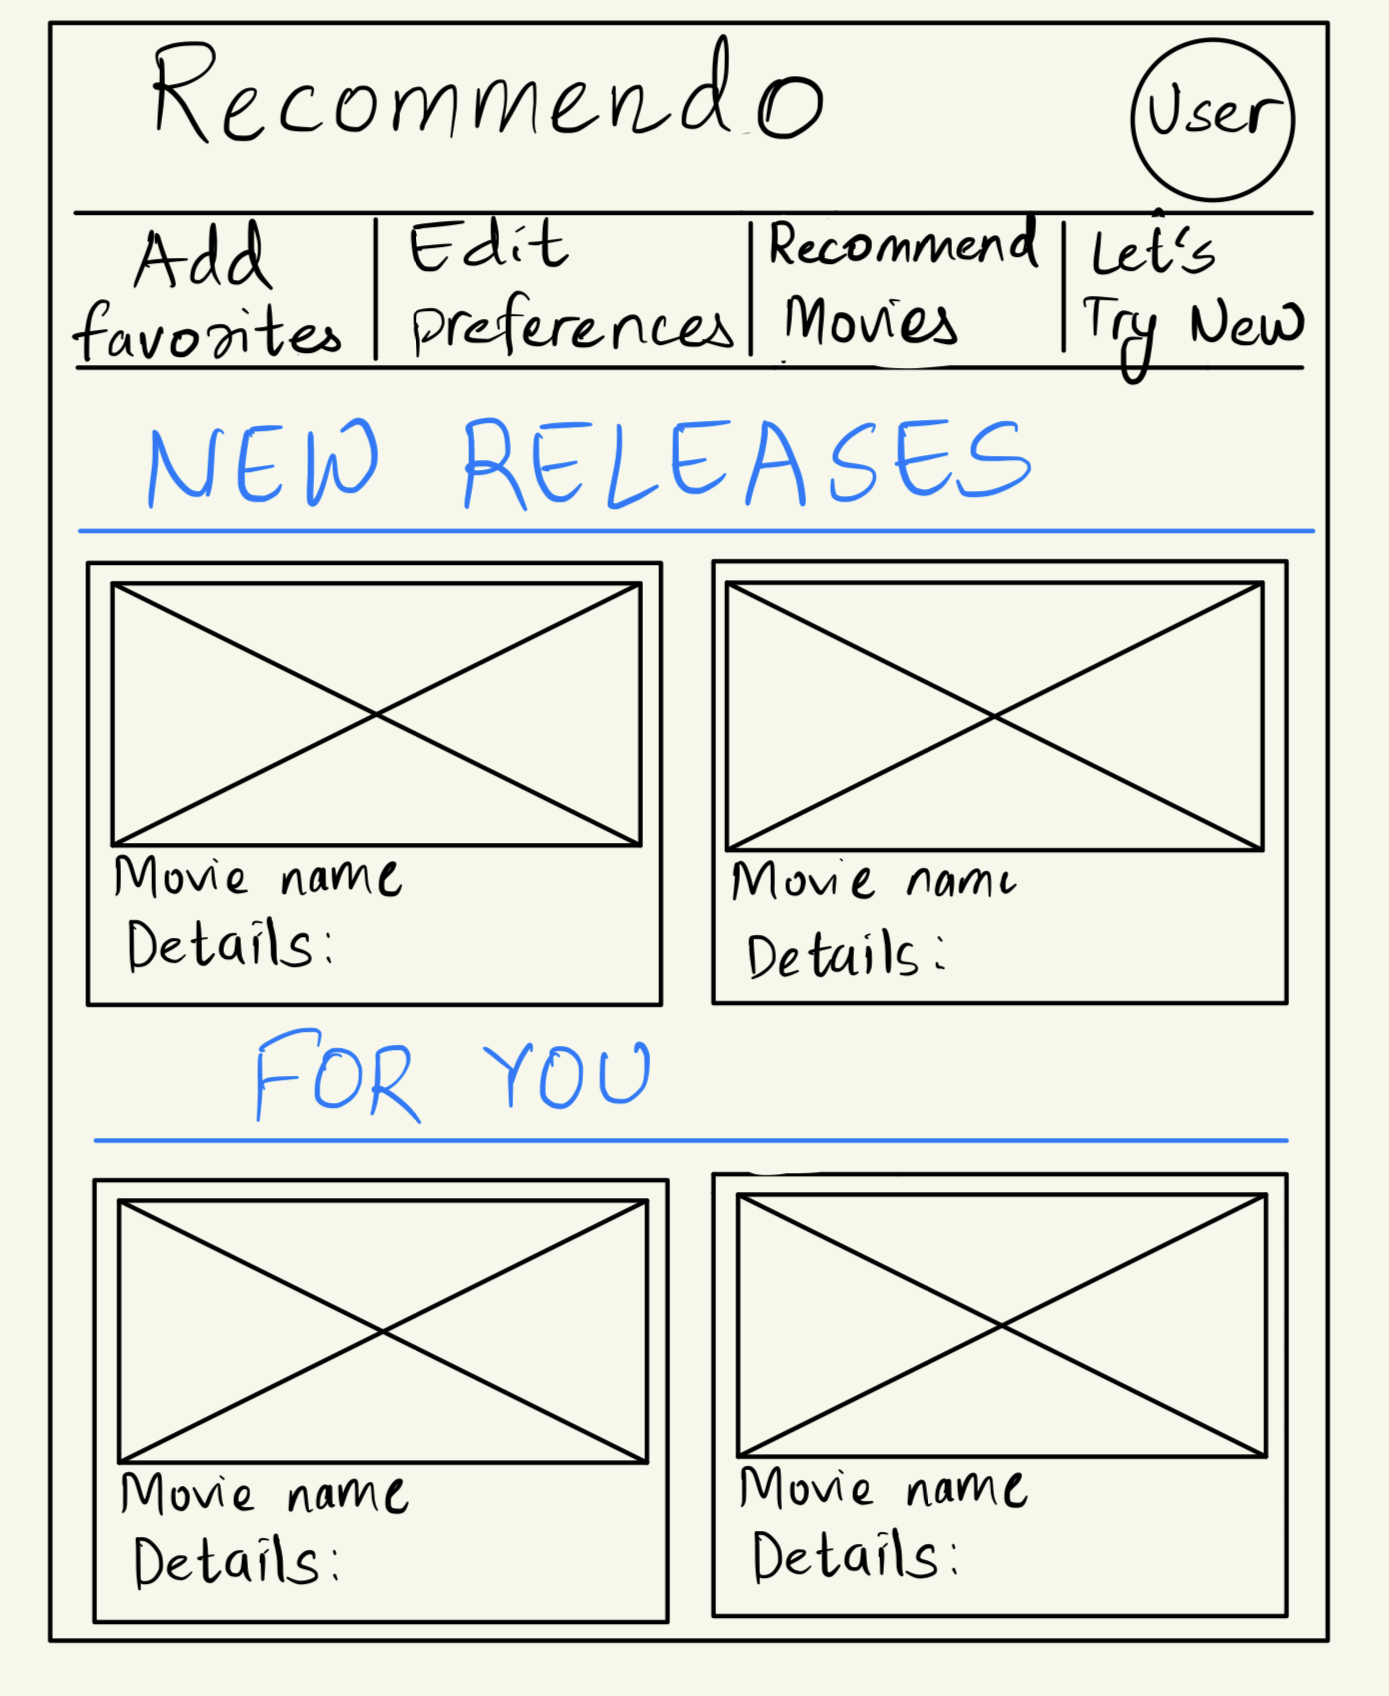 Recommendo
User
Add
favorites
Edit
preferences
Recommend
Movies
Let's
Try New
NEW RELEASES
Movie name
Details:
Movie name
Details:
FOR YOU
Movie name
Details:
Movie name
Details: